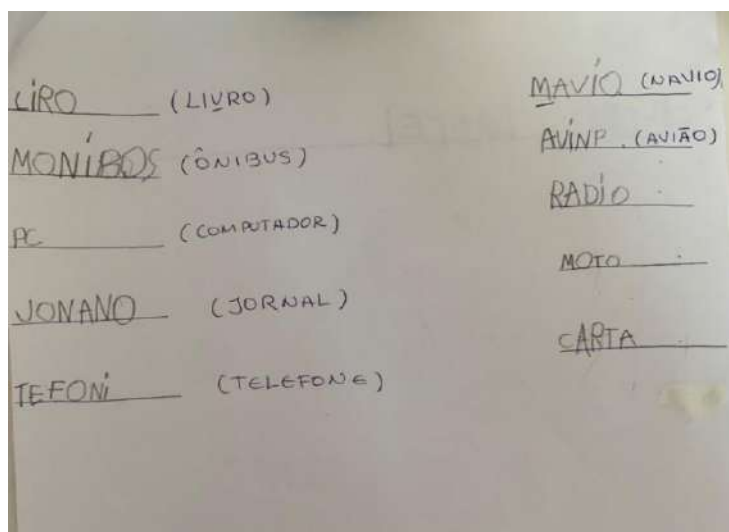 LIRO (LIVRO)
MONIBOS (ÔNIBUS)
PC (COMPUTADOR)
JONANO (JORNAL)
TEFONI (TELEFONE)
MAVIO (NAVIO)
AVINP. (AVIÃO)
RADIO
MOTO
CARTA